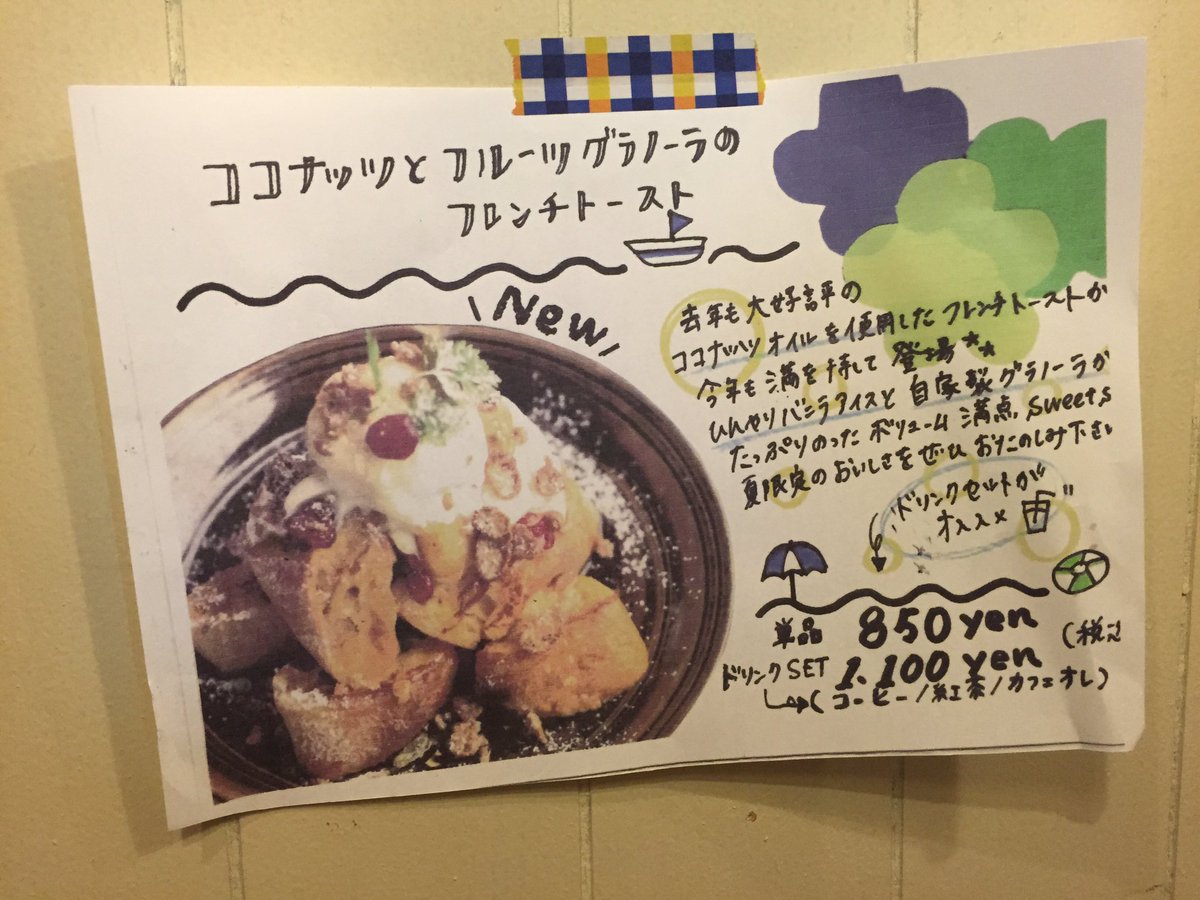 ココナッツとフルーツグラノーラの
フレンチトースト
New
去年も大好評の
ココナッツオイルを使用したフレンチトーストが
今年も満を持して登場★★
ひんやりバニラアイスと自家製グラノーラが
たっぷりのったボリューム満点sweets
夏限定のおいしさをぜひおたのしみ下さい
ドリンクセットが
オススメ
単品 850yen (税込
ドリンクSET 1.100yen
(コーヒー/紅茶/カフェオレ)